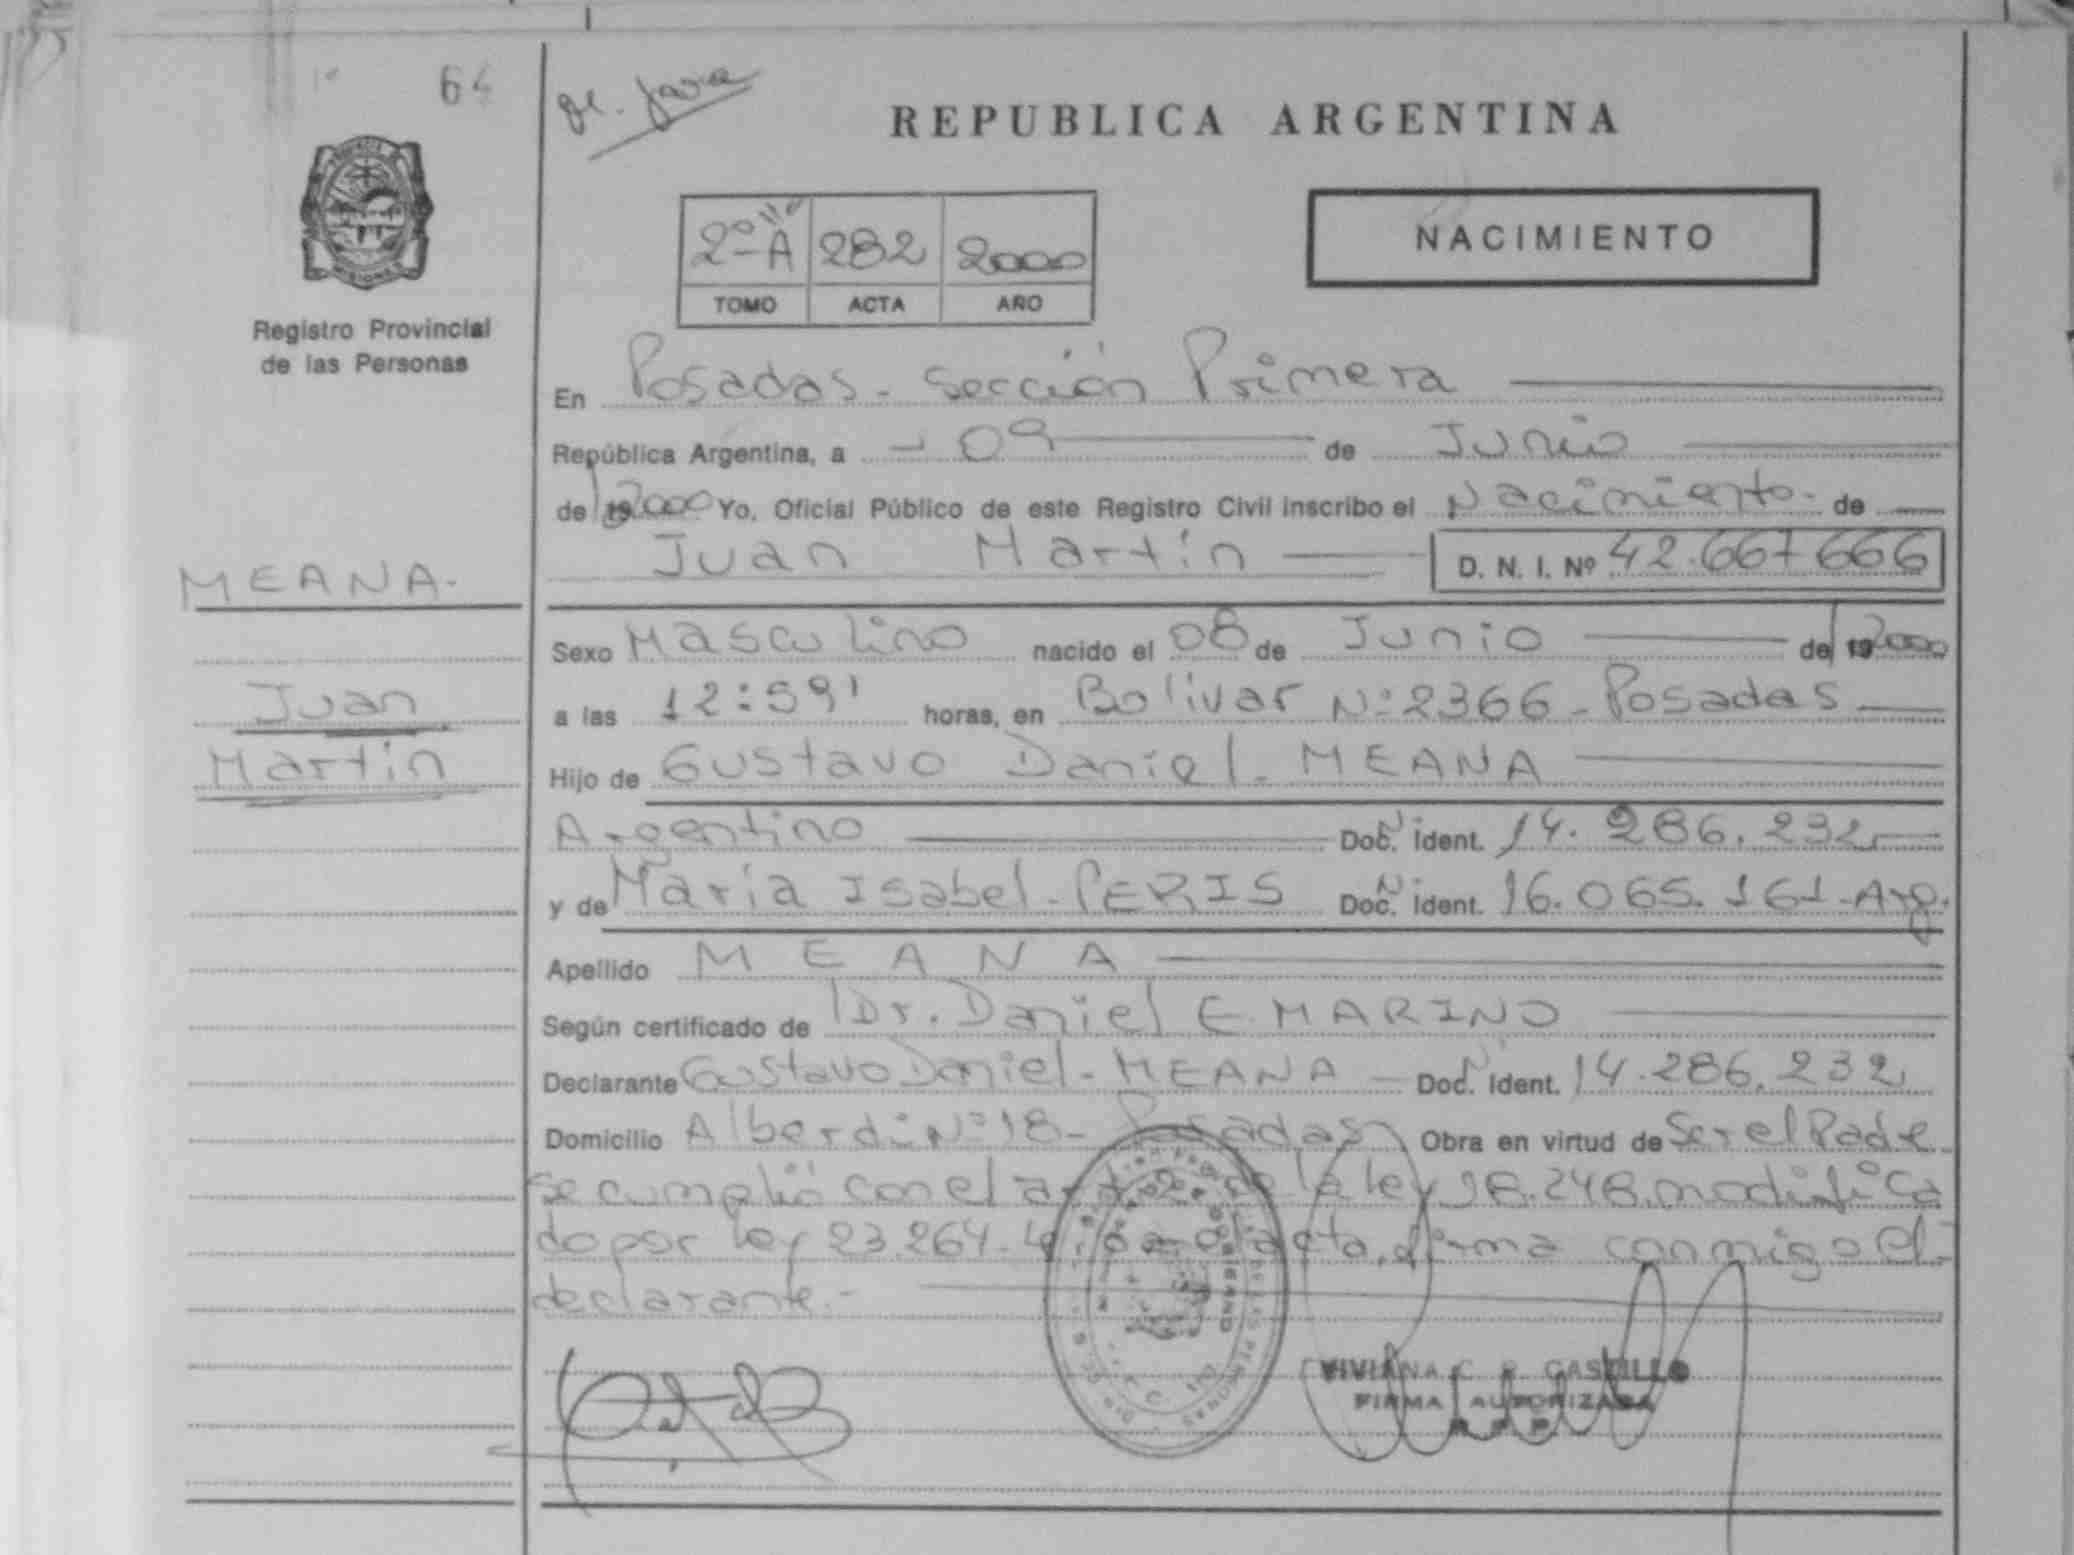 64
REPUBLICA ARGENTINA
NACIMIENTO
2º A 282 2000
TOMO ACTA AÑO
Registro Provincial
de las Personas
En Posadas - Sección Primera
República Argentina, a - 09 de Junio
de 19 2000 Yo, Oficial Público de este Registro Civil inscribo el Nacimiento - de
Juan Martín D. N. I. Nº 42.667666
MEANA.
Juan
Martín
Sexo Masculino nacido el 08 de Junio de 19 2000
a las 12:59' horas, en Bolivar Nº 2366 - Posadas
Hijo de Gustavo Daniel - MEANA
Argentino Doc. Ident. 14.286.232
y de María Isabel - PERIS Doc. Ident. 16.065.161 - Arg.
Apellido MEANA
Según certificado de Dr. Daniel E. MARINO
Declarante Gustavo Daniel - MEANA - Doc. Ident. 14.286.232
Domicilio Alberdi Nº 18 - Posadas Obra en virtud de Ser el Padre
Se cumplió con el art. 2 de la ley 18.248. modifica
do por ley 23.264 - acta, firma conmigo el
declarante.-
VIVIANA C. R. CASTILLO
FIRMA AUTORIZADA
R. P. P.